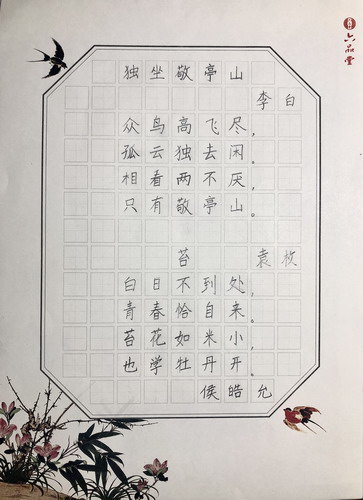 六品堂
独坐敬亭山
李白
众鸟高飞尽，
孤云独去闲。
相看两不厌，
只有敬亭山。
苔 袁枚
白日不到处，
青春恰自来。
苔花如米小，
也学牡丹开。
侯皓允